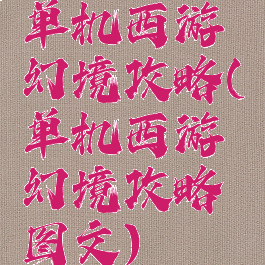 单机西游
幻境攻略(
单机西游
幻境攻略
图文)